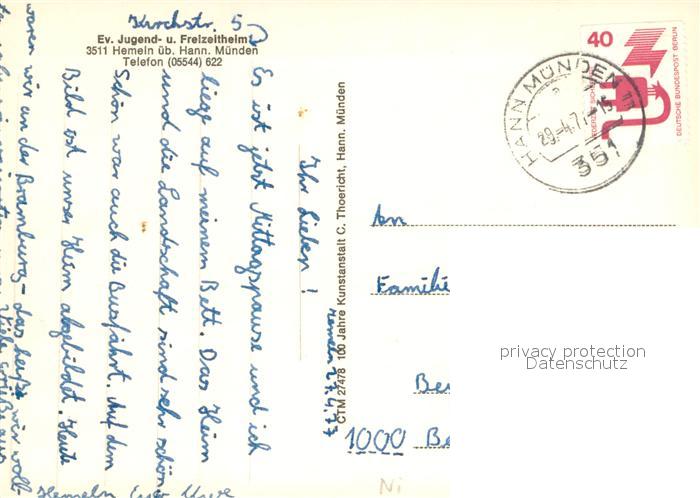 Kirchstr. 5
Ev. Jugend- u. Freizeitheim
3511 Hemeln üb. Hann. Münden
Telefon (05544) 622
Hemeln 27.4.77
Ihr Lieben!
Es ist jetzt Mittagspause und ich
liege auf meinem Bett. Das Heim
und die Landschaft sind sehr schön.
Schön war auch die Busfahrt. Auf dem
Bild ist unser Heim abgebildet. Heute
waren wir an der Bramburg - das heißt wir woll-
Viele Grüße aus
Hemeln Eure
CTM 27478 100 Jahre Kunstanstalt C. Thoericht, Hann. Münden
40
DEUTSCHE BUNDESPOST BERLIN
JEDERZEIT SICHERHEIT
HANN MÜNDEN 11
29.-4.77
351
An
Famili
Be
1000 Be
privacy protection
Datenschutz
Ni